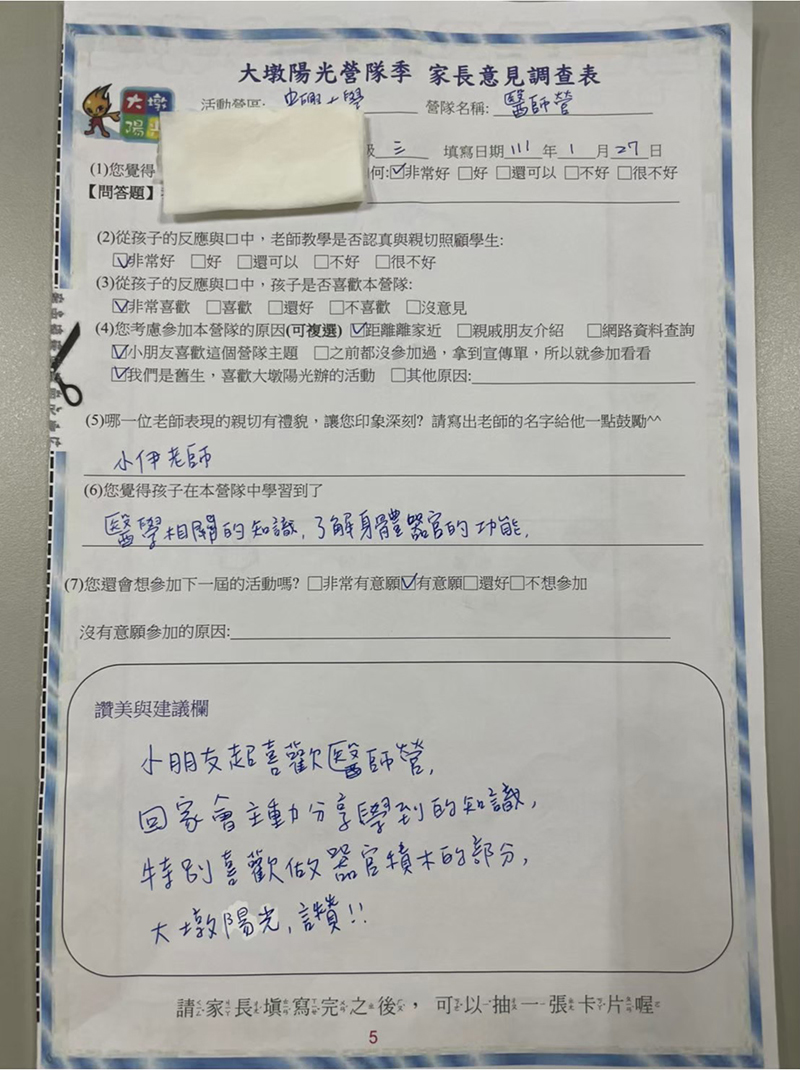 大墩陽光營隊季 家長意見調查表
大墩
陽
活動營區: 中興大學 營隊名稱: 醫師營
級 三 填寫日期 111 年 1 月 27 日
(1)您覺得 何:☑非常好 □好 □還可以 □不好 □很不好
【問答題】
(2)從孩子的反應與口中，老師教學是否認真與親切照顧學生:
☑非常好 □好 □還可以 □不好 □很不好
(3)從孩子的反應與口中，孩子是否喜歡本營隊:
☑非常喜歡 □喜歡 □還好 □不喜歡 □沒意見
(4)您考慮參加本營隊的原因(可複選) ☑距離離家近 □親戚朋友介紹 □網路資料查詢
☑小朋友喜歡這個營隊主題 □之前都沒參加過，拿到宣傳單，所以就參加看看
☑我們是舊生，喜歡大墩陽光辦的活動 □其他原因:
(5)哪一位老師表現的親切有禮貌，讓您印象深刻? 請寫出老師的名字給他一點鼓勵^^
小伊老師
(6)您覺得孩子在本營隊中學習到了
醫學相關的知識,了解身體器官的功能,
(7)您還會想參加下一屆的活動嗎? □非常有意願☑有意願□還好□不想參加
沒有意願參加的原因:
讚美與建議欄
小朋友超喜歡醫師營,
回家會主動分享學到的知識,
特別喜歡做器官積木的部分,
大墩陽光,讚!!
請家長填寫完之後，可以抽一張卡片喔
5